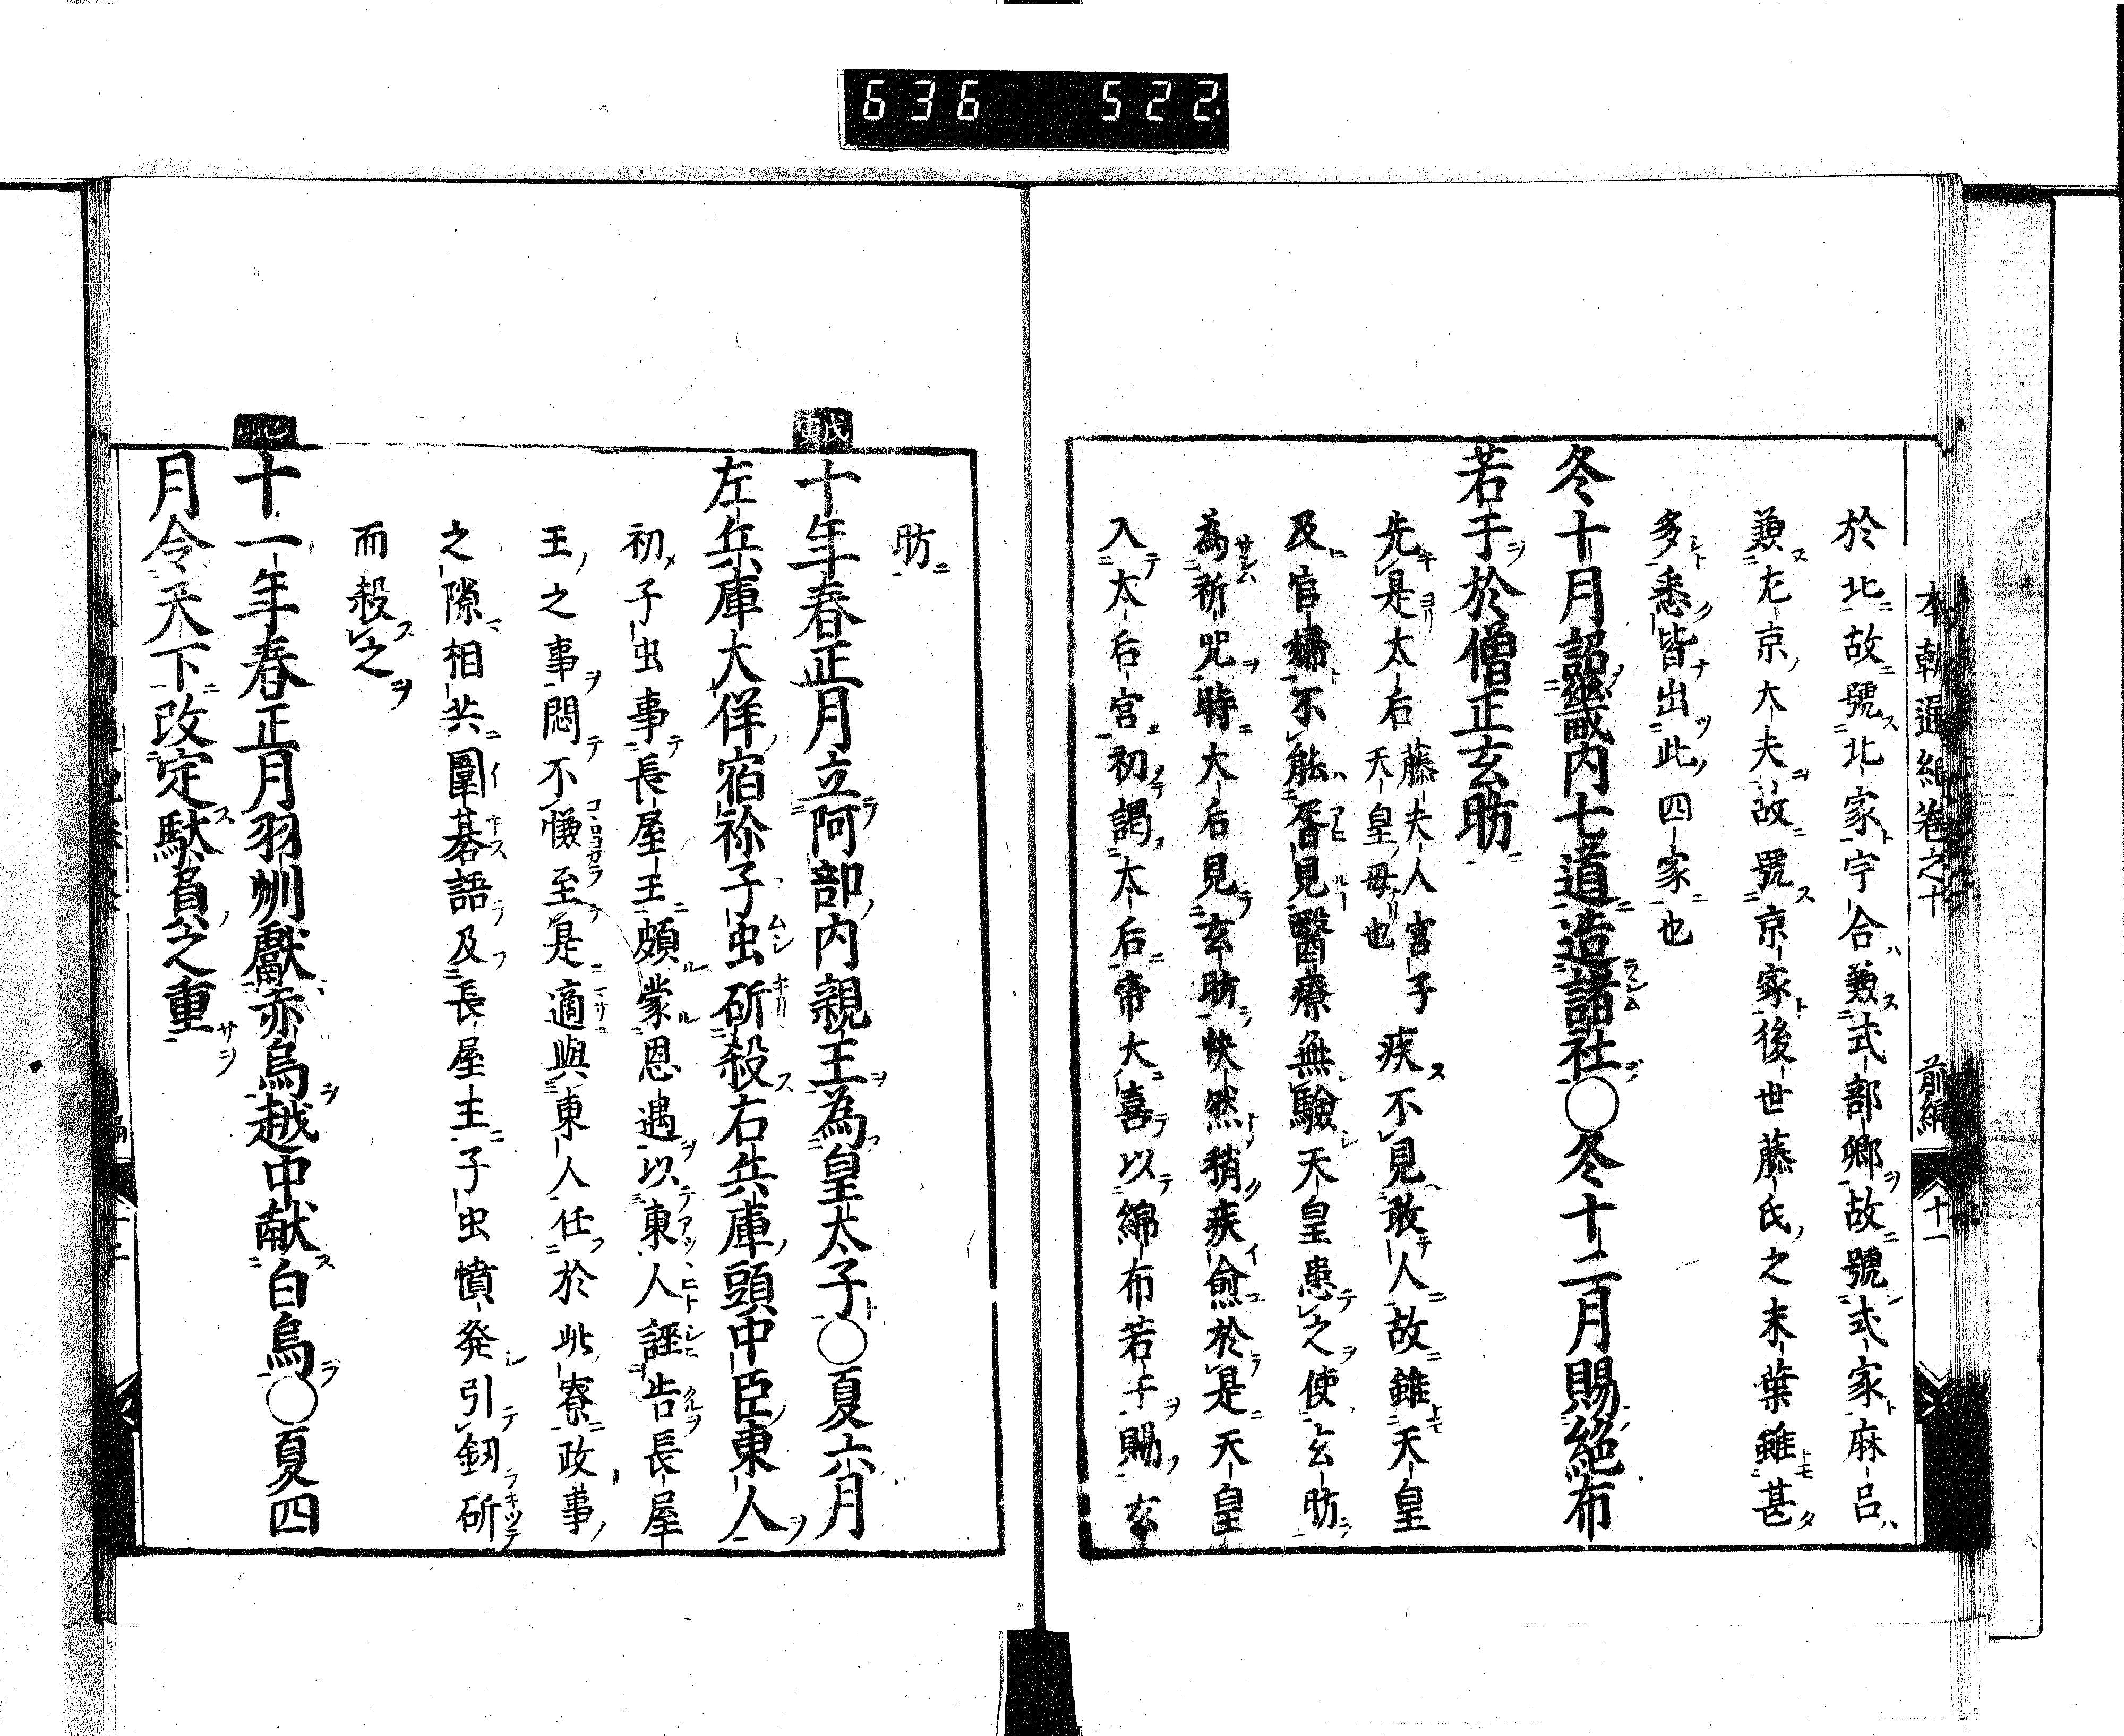 636 522
本朝通紀卷之十 前編 十一
於北故號北家宇合兼式部卿故號式家麻呂
兼左京大夫故號京家後世藤氏之末葉雖甚
多悉皆出此四家也
冬十月詔畿内七道造諸社〇冬十二月賜絁布
若干於僧正玄昉
先是太后藤夫人宮子天皇母也疾不見敢人故雖天皇
及官婦不能胥見醫療無驗天皇患之使玄昉
為祈咒時太后見玄昉快然稍疾愈於是天皇
入太后宮初謁太后帝大喜以綿布若干賜玄
昉
戊寅
十年春正月立阿部内親王為皇太子〇夏六月
左兵庫大伴宿祢子虫斫殺右兵庫頭中臣東人
初子虫事長屋王頗蒙恩遇以東人誣告長屋
王之事悶不慊至是適與東人任於此寮政事
之隙相共圍碁語及長屋王子虫憤発引釼斫
而殺之
己卯
十一年春正月羽州獻赤烏越中献白烏〇夏四
月令天下改定駄負之重